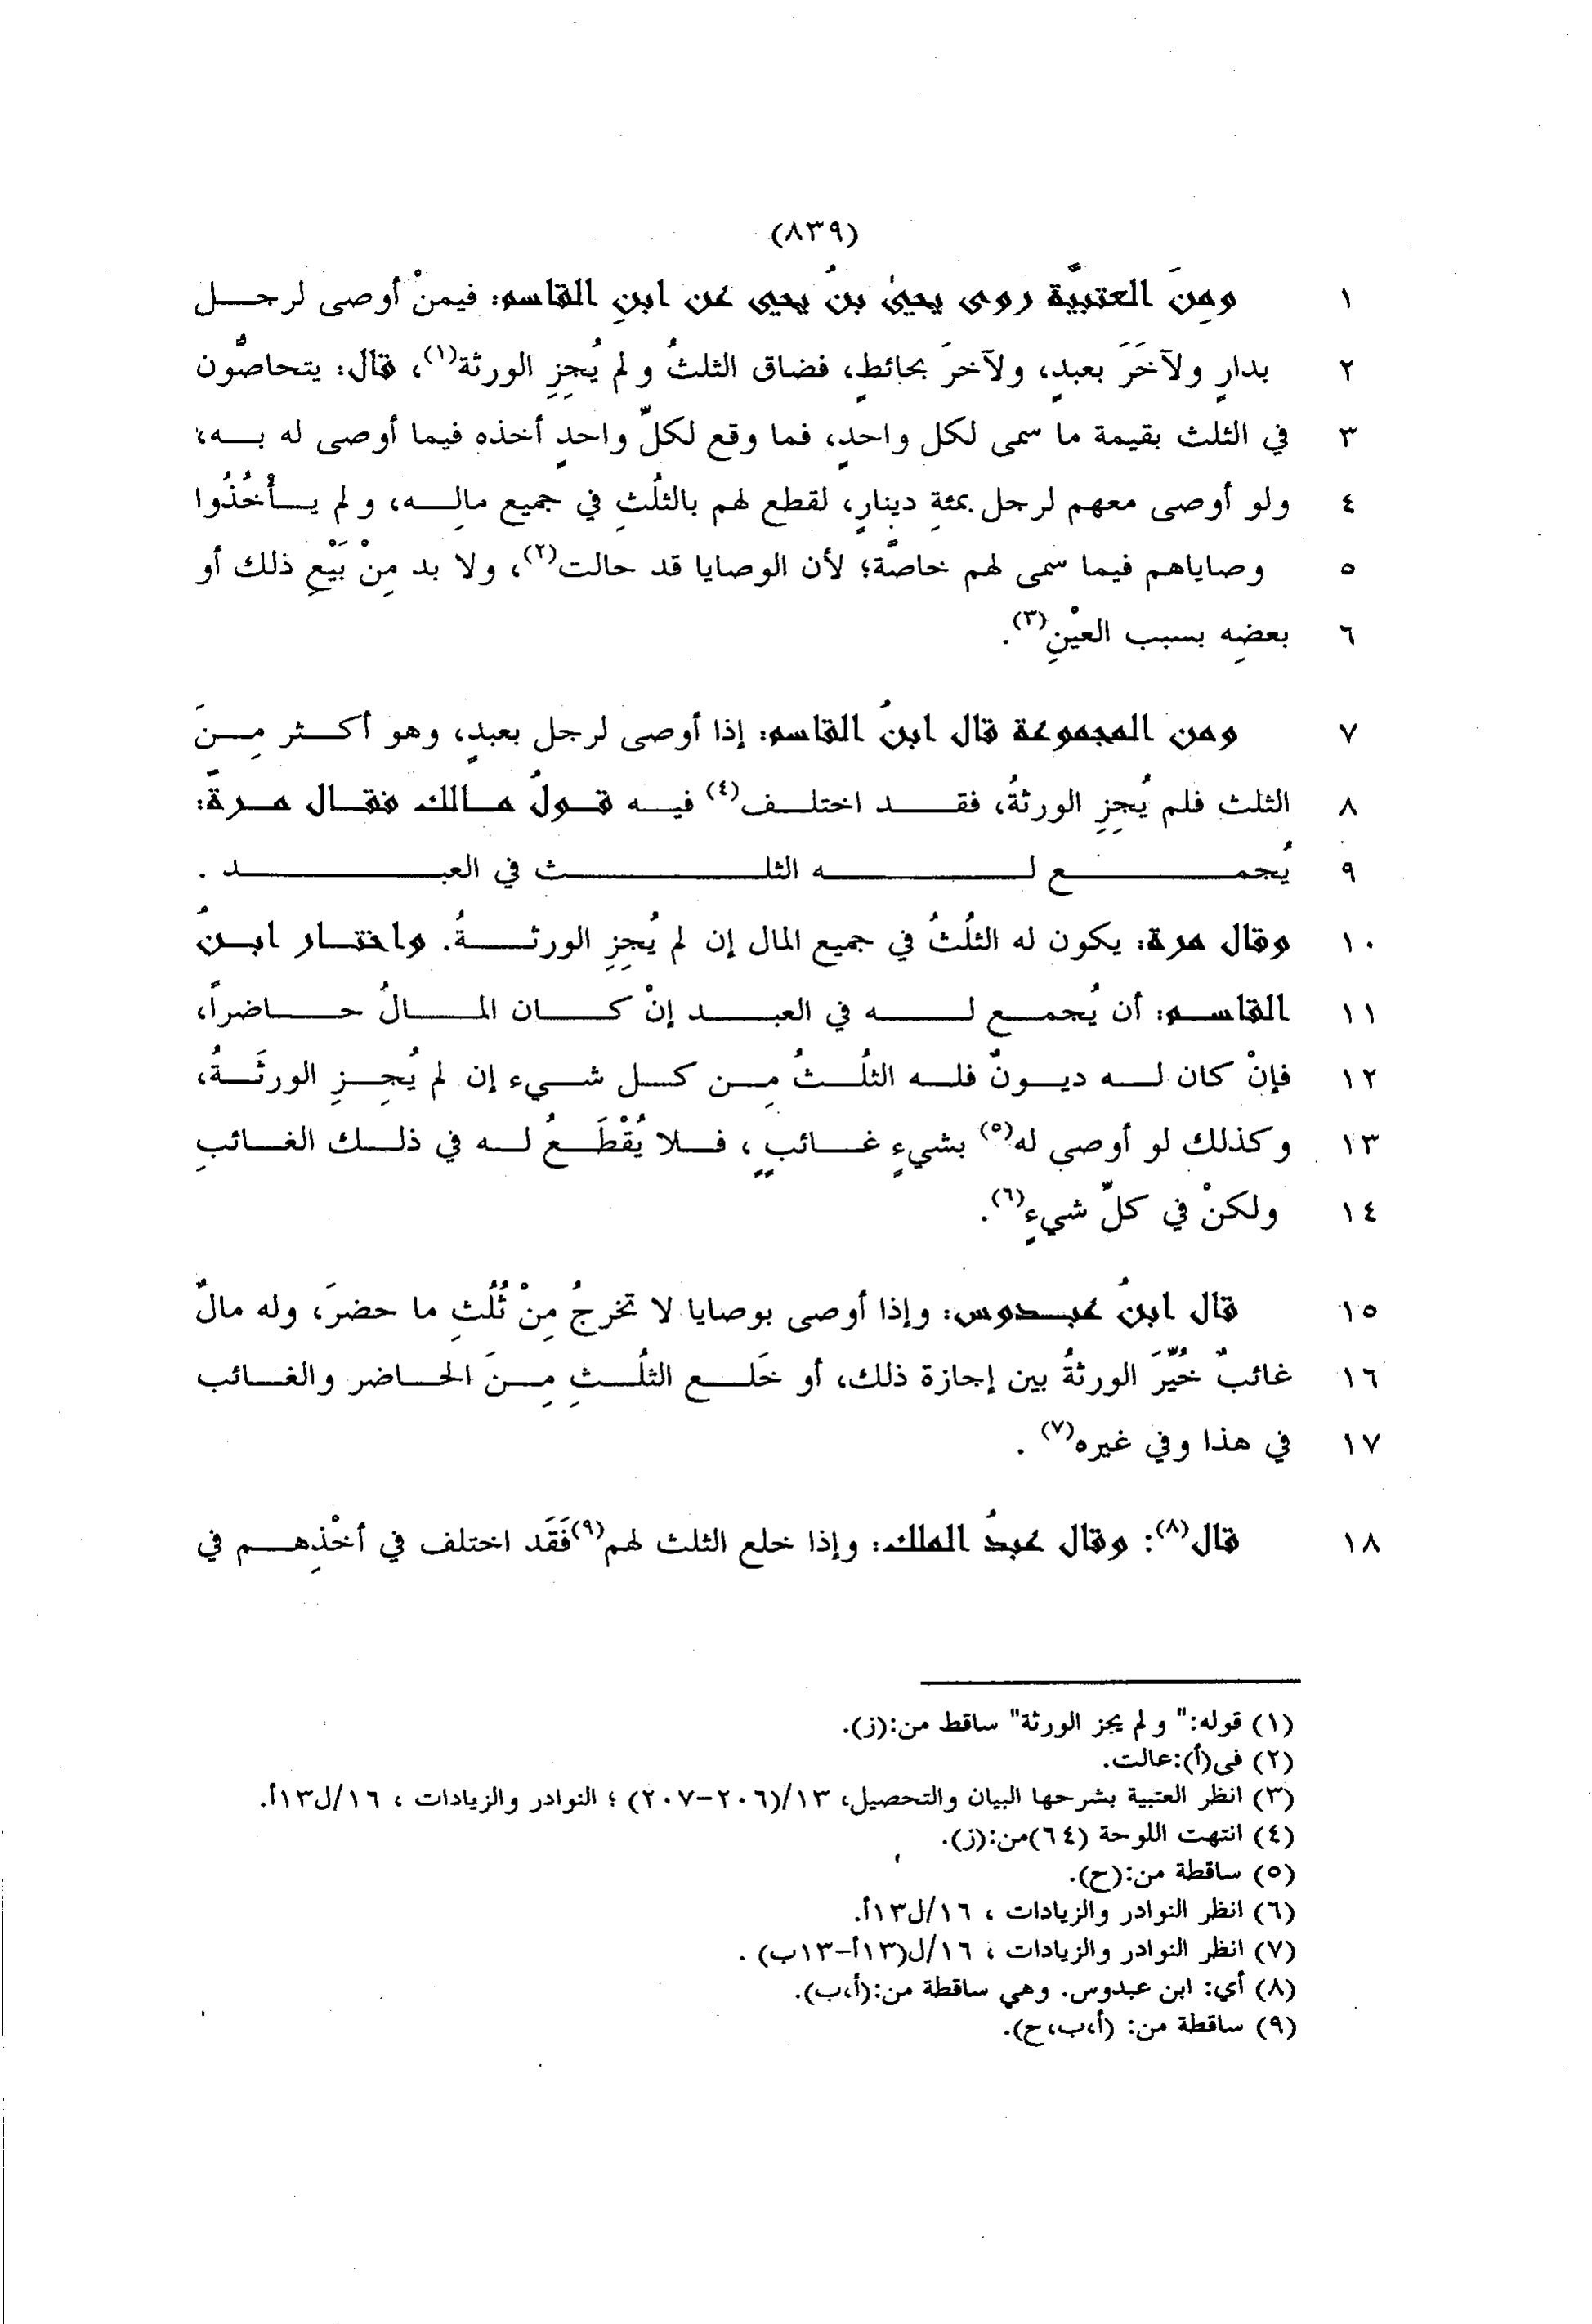 (٨٣٩)
١ ومِنَ العتبيَّة روى يحيىٰ بنُ يحيى عن ابنِ القاسم: فيمنْ أوصى لرجل
٢ بدارٍ ولآخَرَ بعبدٍ، ولآخرَ بحائطٍ، فضاق الثلثُ ولم يُجِزِ الورثة(١)، قال: يتحاصُّون
٣ في الثلث بقيمة ما سمى لكل واحدٍ، فما وقع لكلِّ واحدٍ أخذه فيما أوصى له به،
٤ ولو أوصى معهم لرجل بمئةِ دينارٍ، لقطع لهم بالثلُثِ في جميع مالِه، ولم يأْخُذُوا
٥ وصاياهم فيما سمى لهم خاصَّة؛ لأن الوصايا قد حالت(٢)، ولا بد مِنْ بَيْعِ ذلك أو
٦ بعضِه بسبب العيْنِ(٣).
٧ ومن المجموعة قال ابنُ القاسم: إذا أوصى لرجل بعبدٍ، وهو أكثر مِنَ
٨ الثلث فلم يُجِزِ الورثةُ، فقد اختلف(٤) فيه قولُ مالك فقال مرةً:
٩ يُجمع له الثلث في العبد .
١٠ وقال مرة: يكون له الثلُثُ في جميع المال إن لم يُجِزِ الورثةُ. واختار ابنُ
١١ القاسم: أن يُجمع له في العبد إنْ كان المالُ حاضراً،
١٢ فإنْ كان له ديونٌ فله الثلُثُ مِن كل شيء إن لم يُجِزِ الورثَةُ،
١٣ وكذلك لو أوصى له(٥) بشيءٍ غائبٍ ، فلا يُقْطَعُ له في ذلك الغائبِ
١٤ ولكنْ في كلِّ شيءٍ(٦).
١٥ قال ابنُ عبدوس: وإذا أوصى بوصايا لا تخرجُ مِنْ ثُلُثِ ما حضرَ، وله مالٌ
١٦ غائبٌ خُيِّرَ الورثةُ بين إجازة ذلك، أو خَلع الثلُثِ مِنَ الحاضر والغائب
١٧ في هذا وفي غيره(٧) .
١٨ قال(٨): وقال عبدُ الملك: وإذا خلع الثلث لهم(٩)فَقَد اختلف في أخْذِهم في
(١) قوله:" ولم يجز الورثة" ساقط من:(ز).
(٢) في(أ):عالت.
(٣) انظر العتبية بشرحها البيان والتحصيل، ١٣/(٢٠٦-٢٠٧) ؛ النوادر والزيادات ، ١٦/ل١٣أ.
(٤) انتهت اللوحة (٦٤)من:(ز).
(٥) ساقطة من:(ح).
(٦) انظر النوادر والزيادات ، ١٦/ل١٣أ.
(٧) انظر النوادر والزيادات ، ١٦/ل(١٣أ-١٣ب) .
(٨) أي: ابن عبدوس. وهي ساقطة من:(أ،ب).
(٩) ساقطة من: (أ،ب،ح).